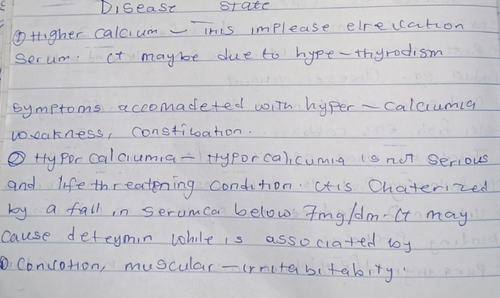 Disease state
① Higher calcium - This implease elrevation
serum. It maybe due to hype-thyrodism
Symptoms accomadeted with hyper-calciumia
weakness, constibation.
② Hyporcalciumia - Hyporcalicumia is not serious
and life threatening condition. It is Chaterized
by a fall in serumca below 7mg/dm. It may
cause deteymin while is associated by
① Convotion, muscular - irritabitability.